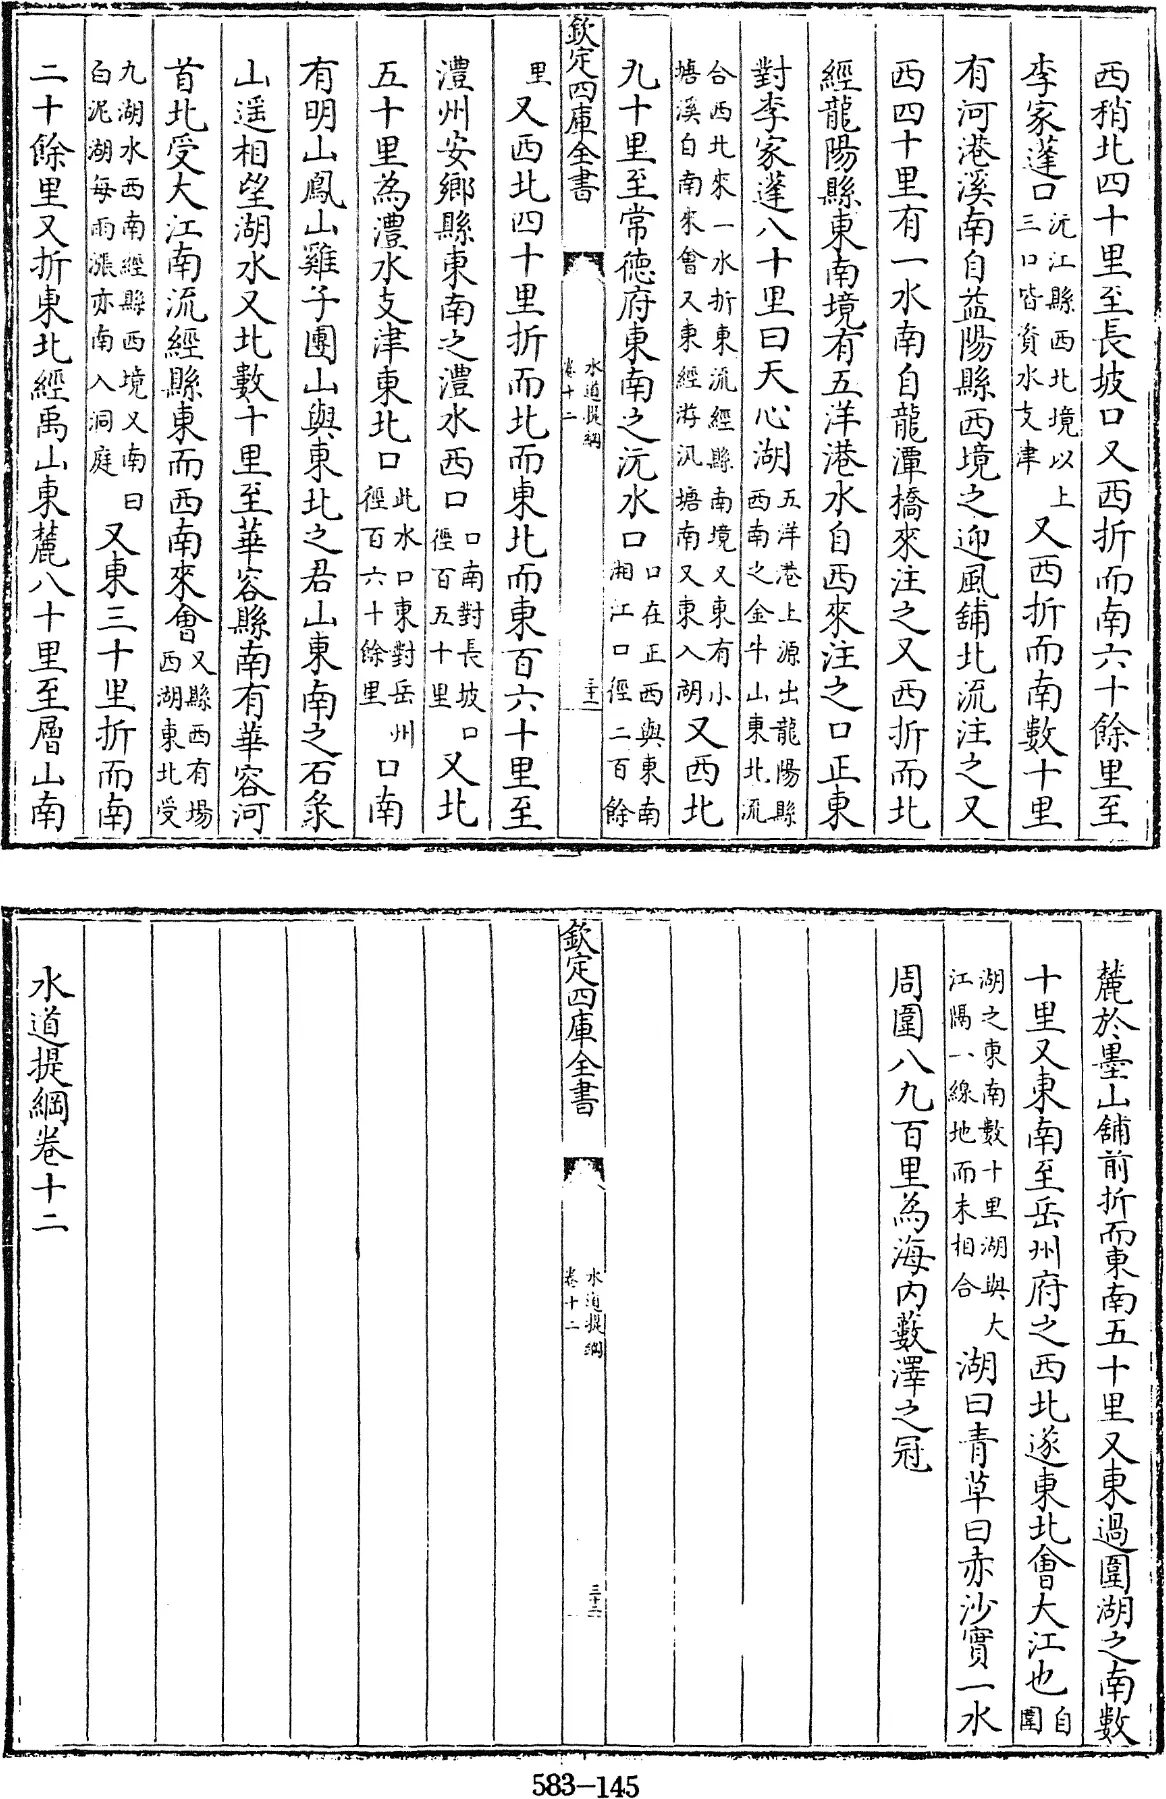 西稍北四十里至長坡口又西折而南六十餘里至
李家蓬口沅江縣西北境以上三口皆資水支津又西折而南數十里
有河港溪南自益陽縣西境之迎風舖北流注之又
西四十里有一水南自龍潭橋來注之又西折而北
經龍陽縣東南境有五洋港水自西來注之口正東
對李家蓬八十里曰天心湖五洋港上源出龍陽縣西南之金牛山東北流
合西北來一水折東流經縣南境又東有小塘溪白南來會又東經游汎塘南又東入湖又西北
九十里至常德府東南之沅水口口在正西與東南湘江口徑二百餘
里又西北四十里折而北而東北而東百六十里至
澧州安鄉縣東南之澧水西口口南對長坡口徑百五十里又北
五十里為澧水支津東北口此水口東對岳州徑百六十餘里口南
有明山鳳山雞子團山與東北之君山東南之石㒸
山遥相望湖水又北數十里至華容縣南有華容河
首北受大江南流經縣東而西南來會又縣西有塲西湖東北受
九湖水西南經縣西境又南曰白泥湖每雨漲亦南入洞庭又東三十里折而南
二十餘里又折東北經禹山東麓八十里至層山南
欽定四庫全書
水道提綱
卷十二
三十二
麓於墨山舖前折而東南五十里又東過圍湖之南數
十里又東南至岳州府之西北遂東北會大江也自圍
湖之東南數十里湖與大江隔一線地而未相合湖曰青草曰赤沙實一水
周圍八九百里為海内藪澤之冠
欽定四庫全書
水道提綱
卷十二
三十三
水道提綱卷十二
583-145